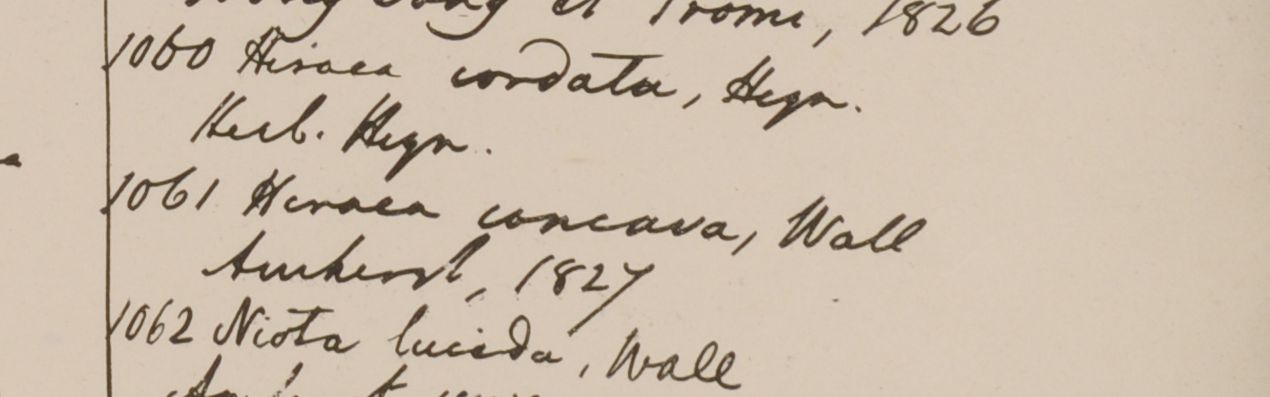 et Prome, 1826
1060 Hiraea cordata, Heyn.
Herb. Heyn.
1061 Hiraea concava, Wall
Amherst, 1827
1062 Niota lucida, Wall